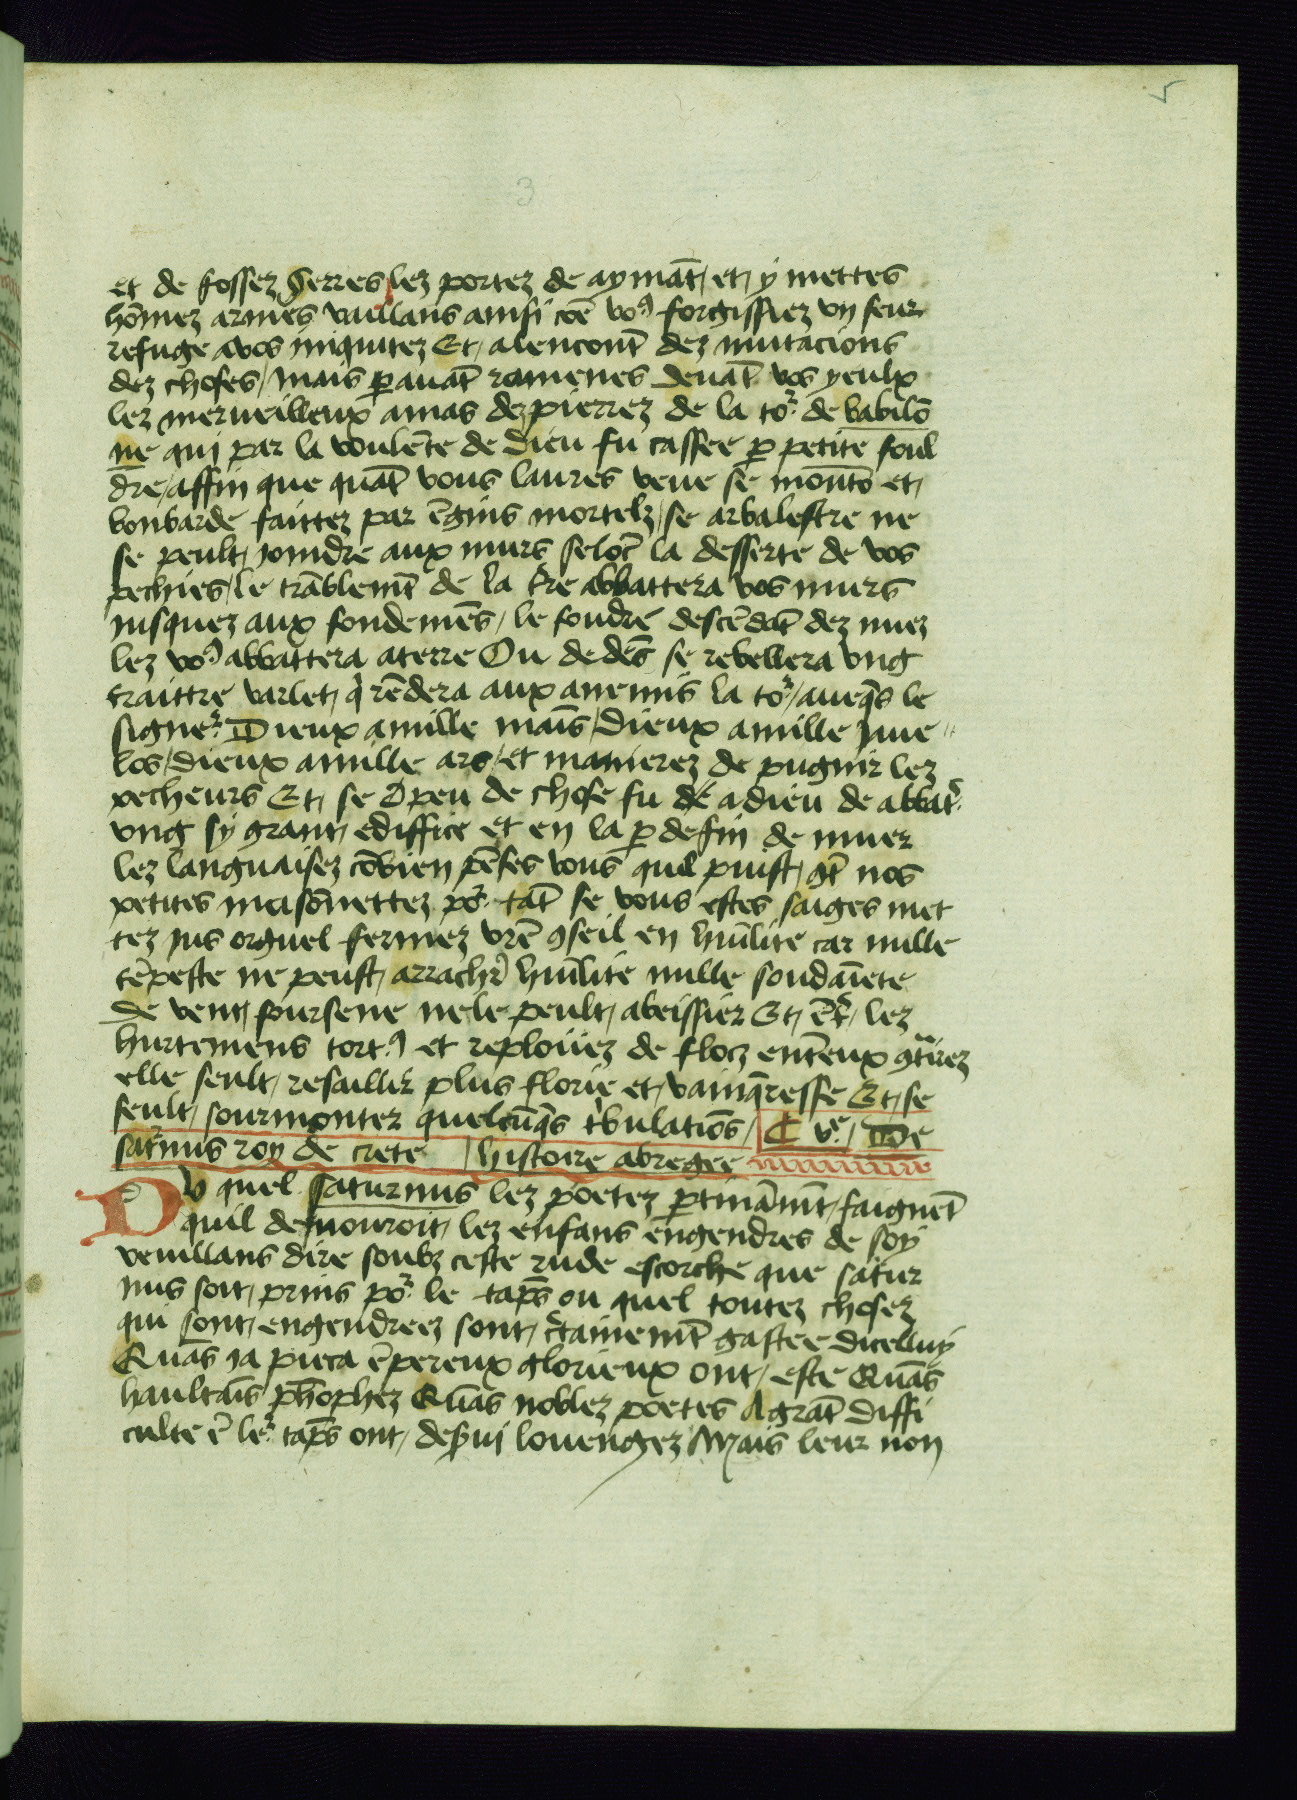 5
3
et de fossez serres lez portez de aymāt et y mettes
hōmez armés vaillans ainsi cōe vo⁹ forgissiez vn seur
refuge a vos iniquitez Et alencont̄ dez mutacions
dez choses / mais ꝑ auāt ramenes deuāt vos yeulx
lez merueilleux amas dez pierrez de la to͛ de babilō
ne qui par la voulēte de dieu fu cassee ꝑ petite foul
dre / affin que quāt vous laures veue se
bonbarde faittez par ēgins mortelz / se arbalestre ne
se peult joindre aux murs la desserte de vos
pechies / le trāblemt̄ de la t̄re abbattera vos murs
jusquez aux fondemēs / le foudre descēdāt dez nuez
lez vo⁹ abbattera a terre Ou de dēs se rebellera vng
traittre varlet q̄ rēdera aux anemis la to͛ / aueq̄s le
signe͛ Dieux a mille mais / dieux a mille jaue
los / dieux a mille ars / et manierez de pugnir lez
pecheurs Et se peu de chose fu a dieu de abbat͛
vng sy grant ediffice et en la ꝑ de fin de muer
lez languaisez cōbien pēses vous quil puist nos
petites maisōnettez po͛ tāt se vous estes saiges met
tez jus orguel fermez vr̄e ꝯseil en hūilite car nulle
tēpeste ne peust arrach͛ hūilite nulle soudaīete
de vent ne le peult abeissier Et ēt͛ / lez
hurtemens tort⁹ et reploüez de flocz entreeux ꝯt͛irez
elle seult resaillir plus florie et vainq̄resse Et se
seult sourmonter quelcūq̄s t͛bulatiōs / C vᵉ / De
sat͛nus roy de crete histoire abregee
Du quel saturnus lez poetez ꝑtināmt̄ faignēt
quil demouroit lez enfans engendres de soy
veuillans dire soubz ceste rude escorche que satur
nus soit prins po͛ le tāps ou quel toutez chosez
qui sont engendreez sont c͛tainemt̄ gastee dicelluy
Quās ja pieca ēpereux glorieux ont este Quās
haultaīs ph̄ophez Quās noblez poetes A grāt diffi
culte ē le͛ tāps ont des͛ui louengez Mais leur non